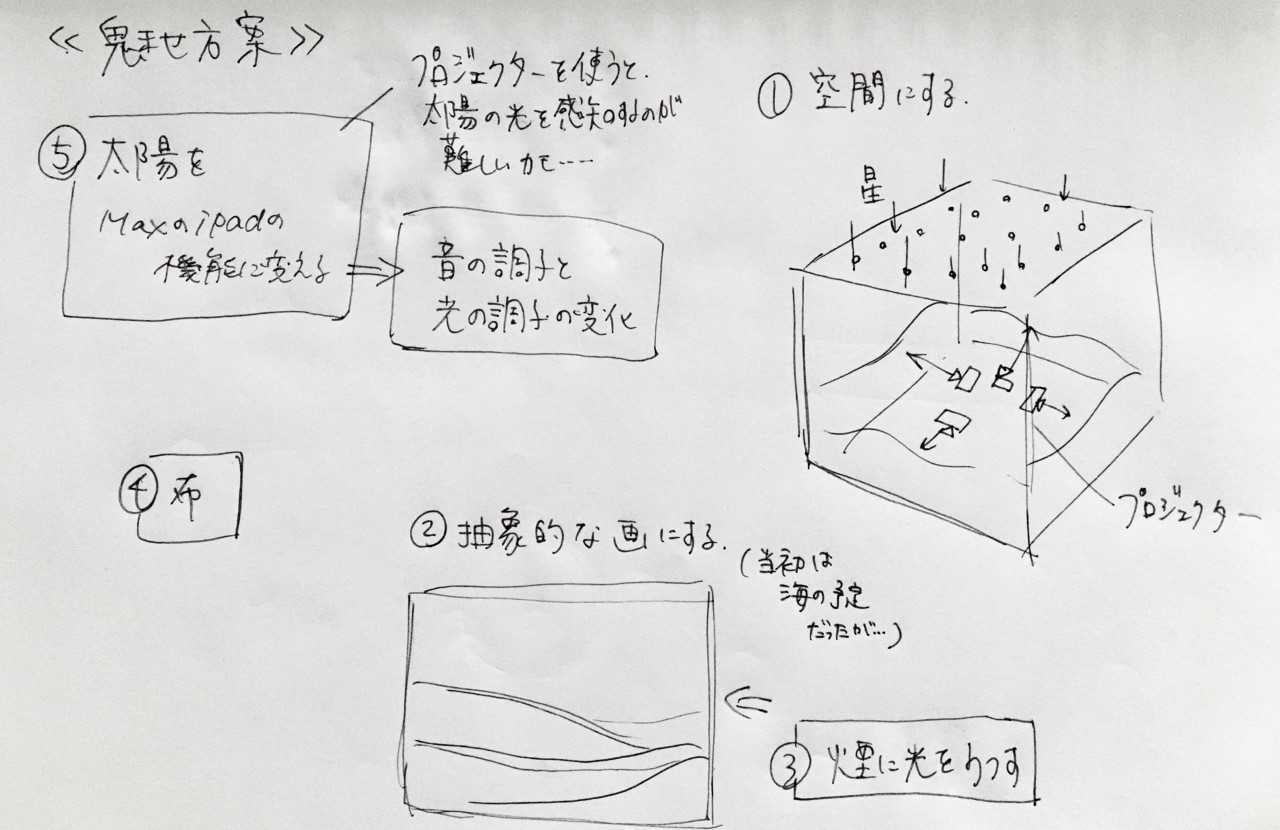 ≪魅せ方案≫
⑤ 太陽を
Maxのipadの
機能に変える
プロジェクターを使うと、
太陽の光を感知するのが
難しいカモ……
音の調子と
光の調子の変化
① 空間にする.
星
プロジェクター
④ 布
② 抽象的な画にする.
(当初は
海の予定
だったが…)
③ 煙に光をうつす